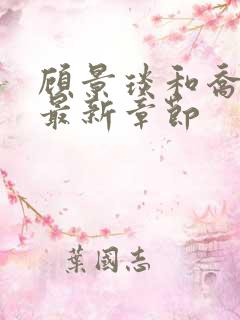 顾景琰和乔
最新章节
葉國志